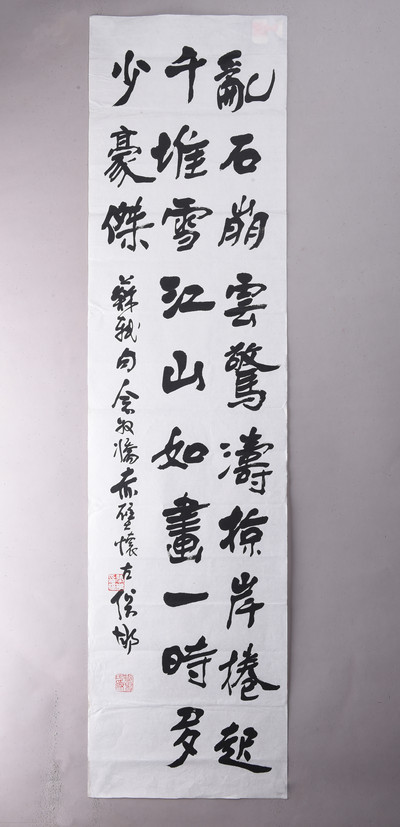 亂石崩雲驚濤掠岸捲起
千堆雪江山如畫一時多
少豪傑
蘇軾句念奴嬌赤壁懷古